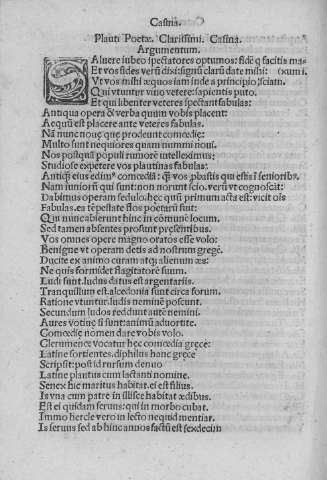 Casina.
Plauti Poetæ. Clarissimi. Casina.
Argumentum.
SAluere iubeo spectatores optumos: fidē q̄ facitis ma-
Et vos fides verū dixi: signū clarū date mihi: (xumi.
Vt vos mihi æquos iam inde a principio sciam.
Qui vtuntur vino vetere: sapientis puto.
Et qui libenter veteres spectant fabulas:
Antiqua opera & verba quum vobis placent:
Aequū est placere ante veteres fabulas.
Nā nunc nouę quę prodeunt comœdię:
Multo sunt nequiores quam nummi noui.
Nos postquā populi rumorē intelleximus:
Studiose expetere vos plautinas fabulas:
Antiquā eius edimꝰ comœdiā: quā vos probastis qui estis ī senioribꝰ
Nam iuniorū qui sunt: non norunt scio. verū vt cognoscāt:
Dabimus operam sedulo. hęc quū primum acta est: vicit oīs
Fabulas. ea tēpestate flos poetarū fuit:
Qui nunc abierunt hinc in cōmunē locum.
Sed tamen absentes prosunt pręsentibus.
Vos omnes opere magno oratos esse volo:
Benigne vt operam detis ad nostrum gregē.
Ducite ex animo curam atq; alienum æs:
Ne quis formidet flagitatorē suum.
Ludi sunt. ludus datus est argentariis.
Tranquillum est. alcedonia sunt circa forum.
Ratione vtuntur. ludis neminē poscunt.
Secundum ludos reddunt autē nemini.
Aures vociuę si sunt: animū aduortite.
Comœdię nomen dare vobis volo.
Clerumenœ vocatur hęc comœdia gręce:
Latine sortientes. diphilus hanc gręce
Scripsit: post id rursum denuo
Latine plautus cum lactanti nomine.
Senex hic maritus habitat. ei est filius.
Is vna cum patre in illisce habitat ædibus.
Est ei quidam seruus: qui in morbo cubat.
Immo hercle vero in lecto nequid mentiar.
Is seruus sed ab hinc annos factū est sexdecim